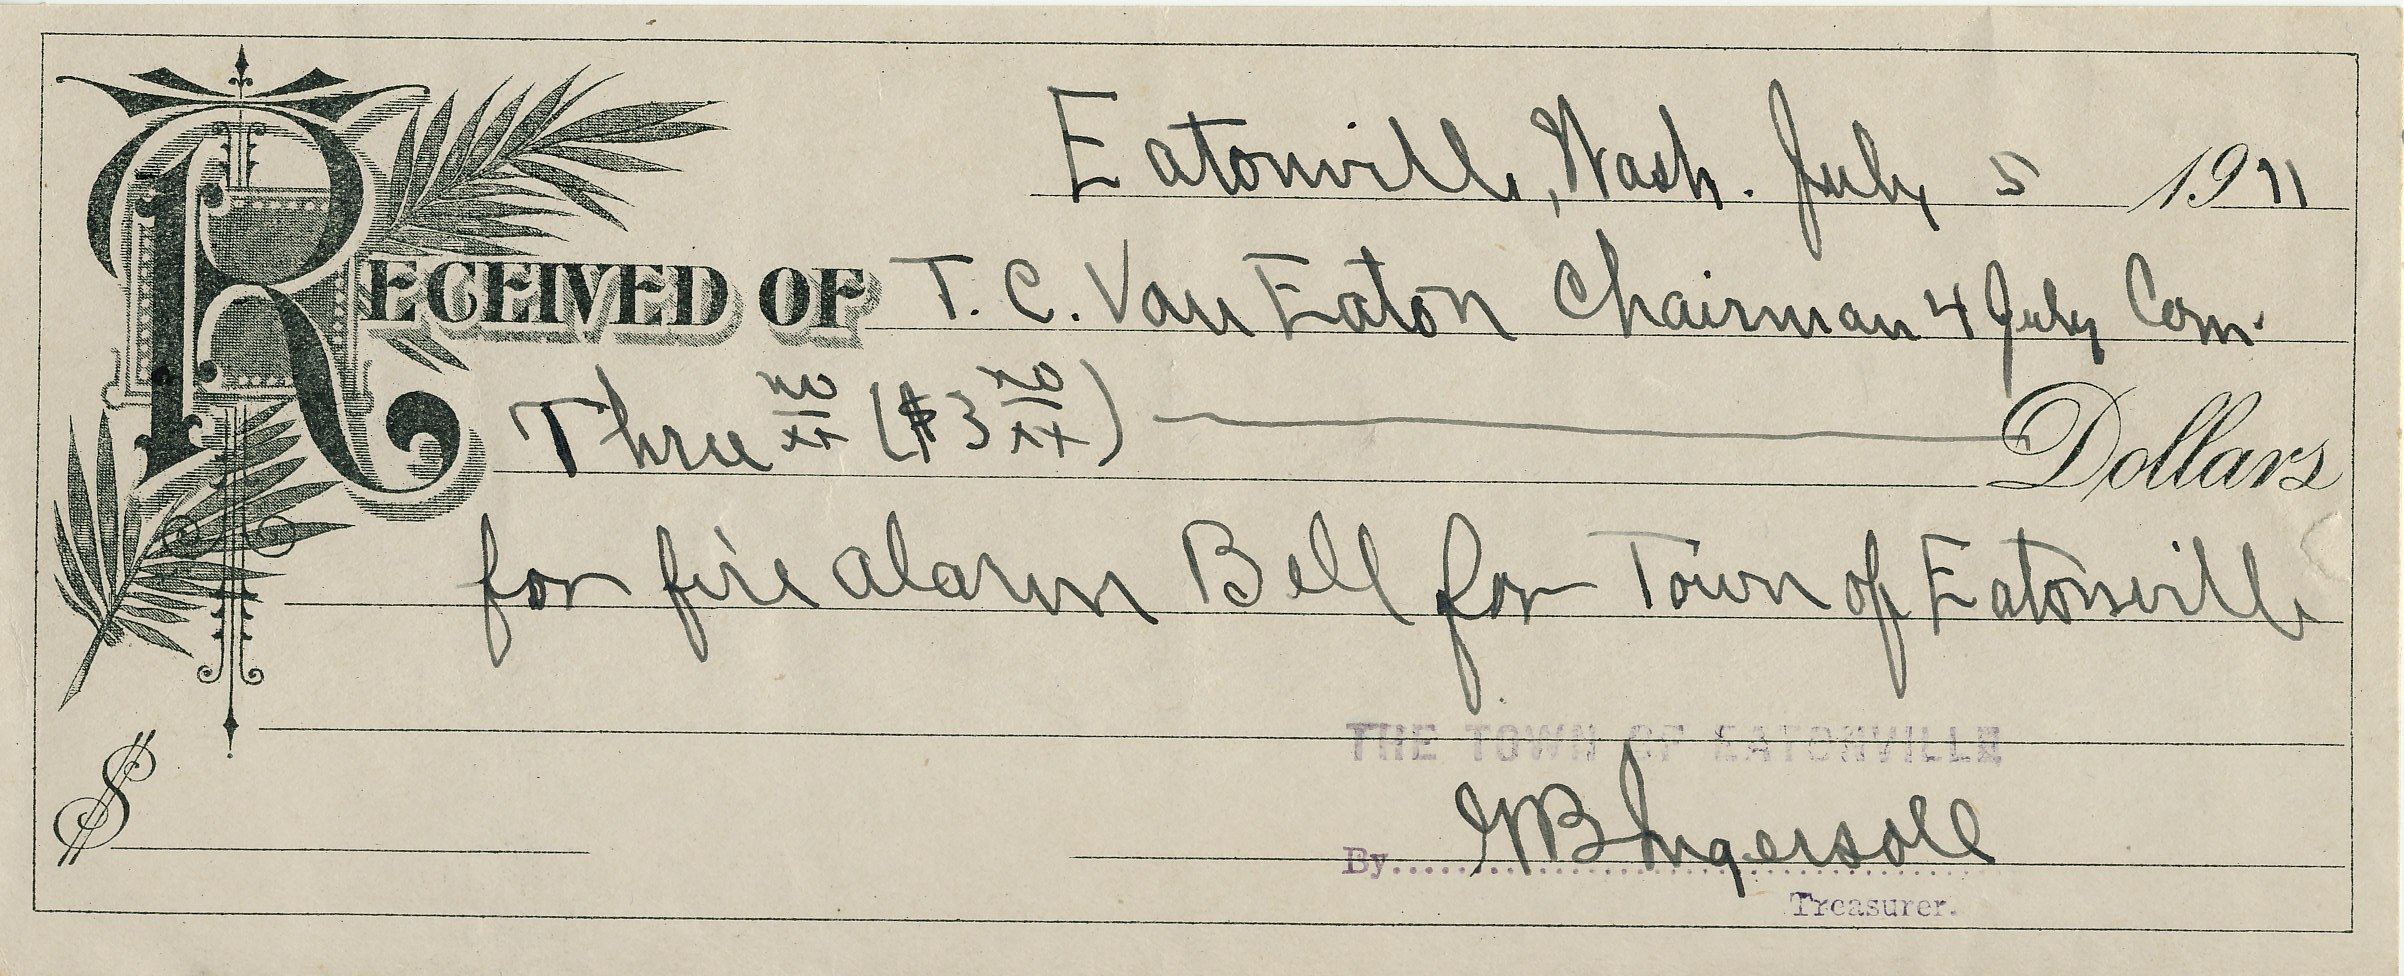 Eatonville, Wash. July 5 1911
RECEIVED OF T. C. Van Eaton Chairman 4 July Com.
Three no/xx ($3 no/xx) Dollars
for fire alarm Bell for Town of Eatonville
THE TOWN OF EATONVILLE
$
By Ingersoll
Treasurer.